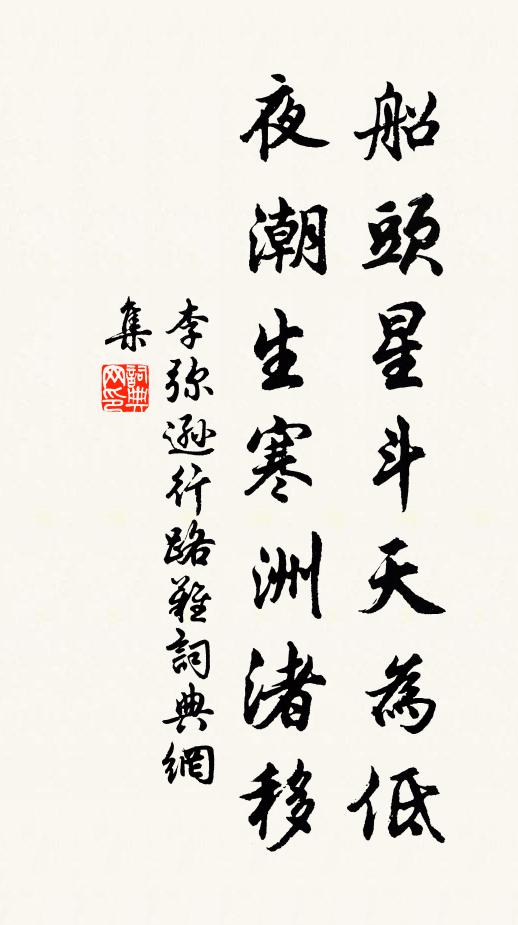 船頭星斗天為低
夜潮生寒洲渚移
李弥遜行路難詞典網
集
詞典网印